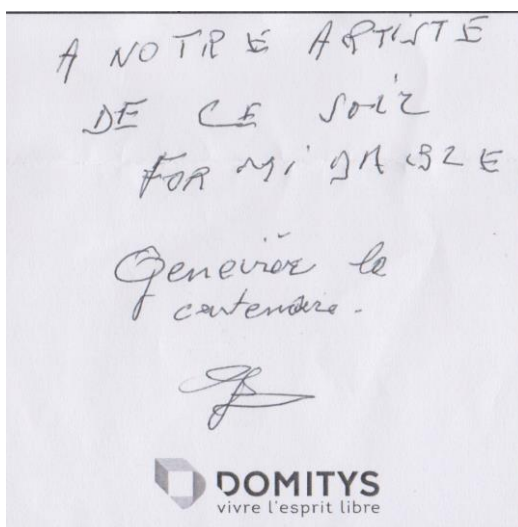 A NOTRE ARTISTE
DE CE SOIR
FORMIDABLE
Geneviève la
centenaire.
DOMITYS
vivre l'esprit libre